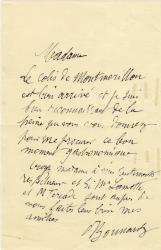 Madame
Le colis de Montmorillon
est bien arrivé et je suis
bien reconnaissant de la
peine que vous vous donnez
pour me procurer ce bon
moment gastronomique
Croyez madame à mes sentiments
respectueux et si Mr
et M. sont auprès de
vous faites leur bien mes
amitiés
Bonnard